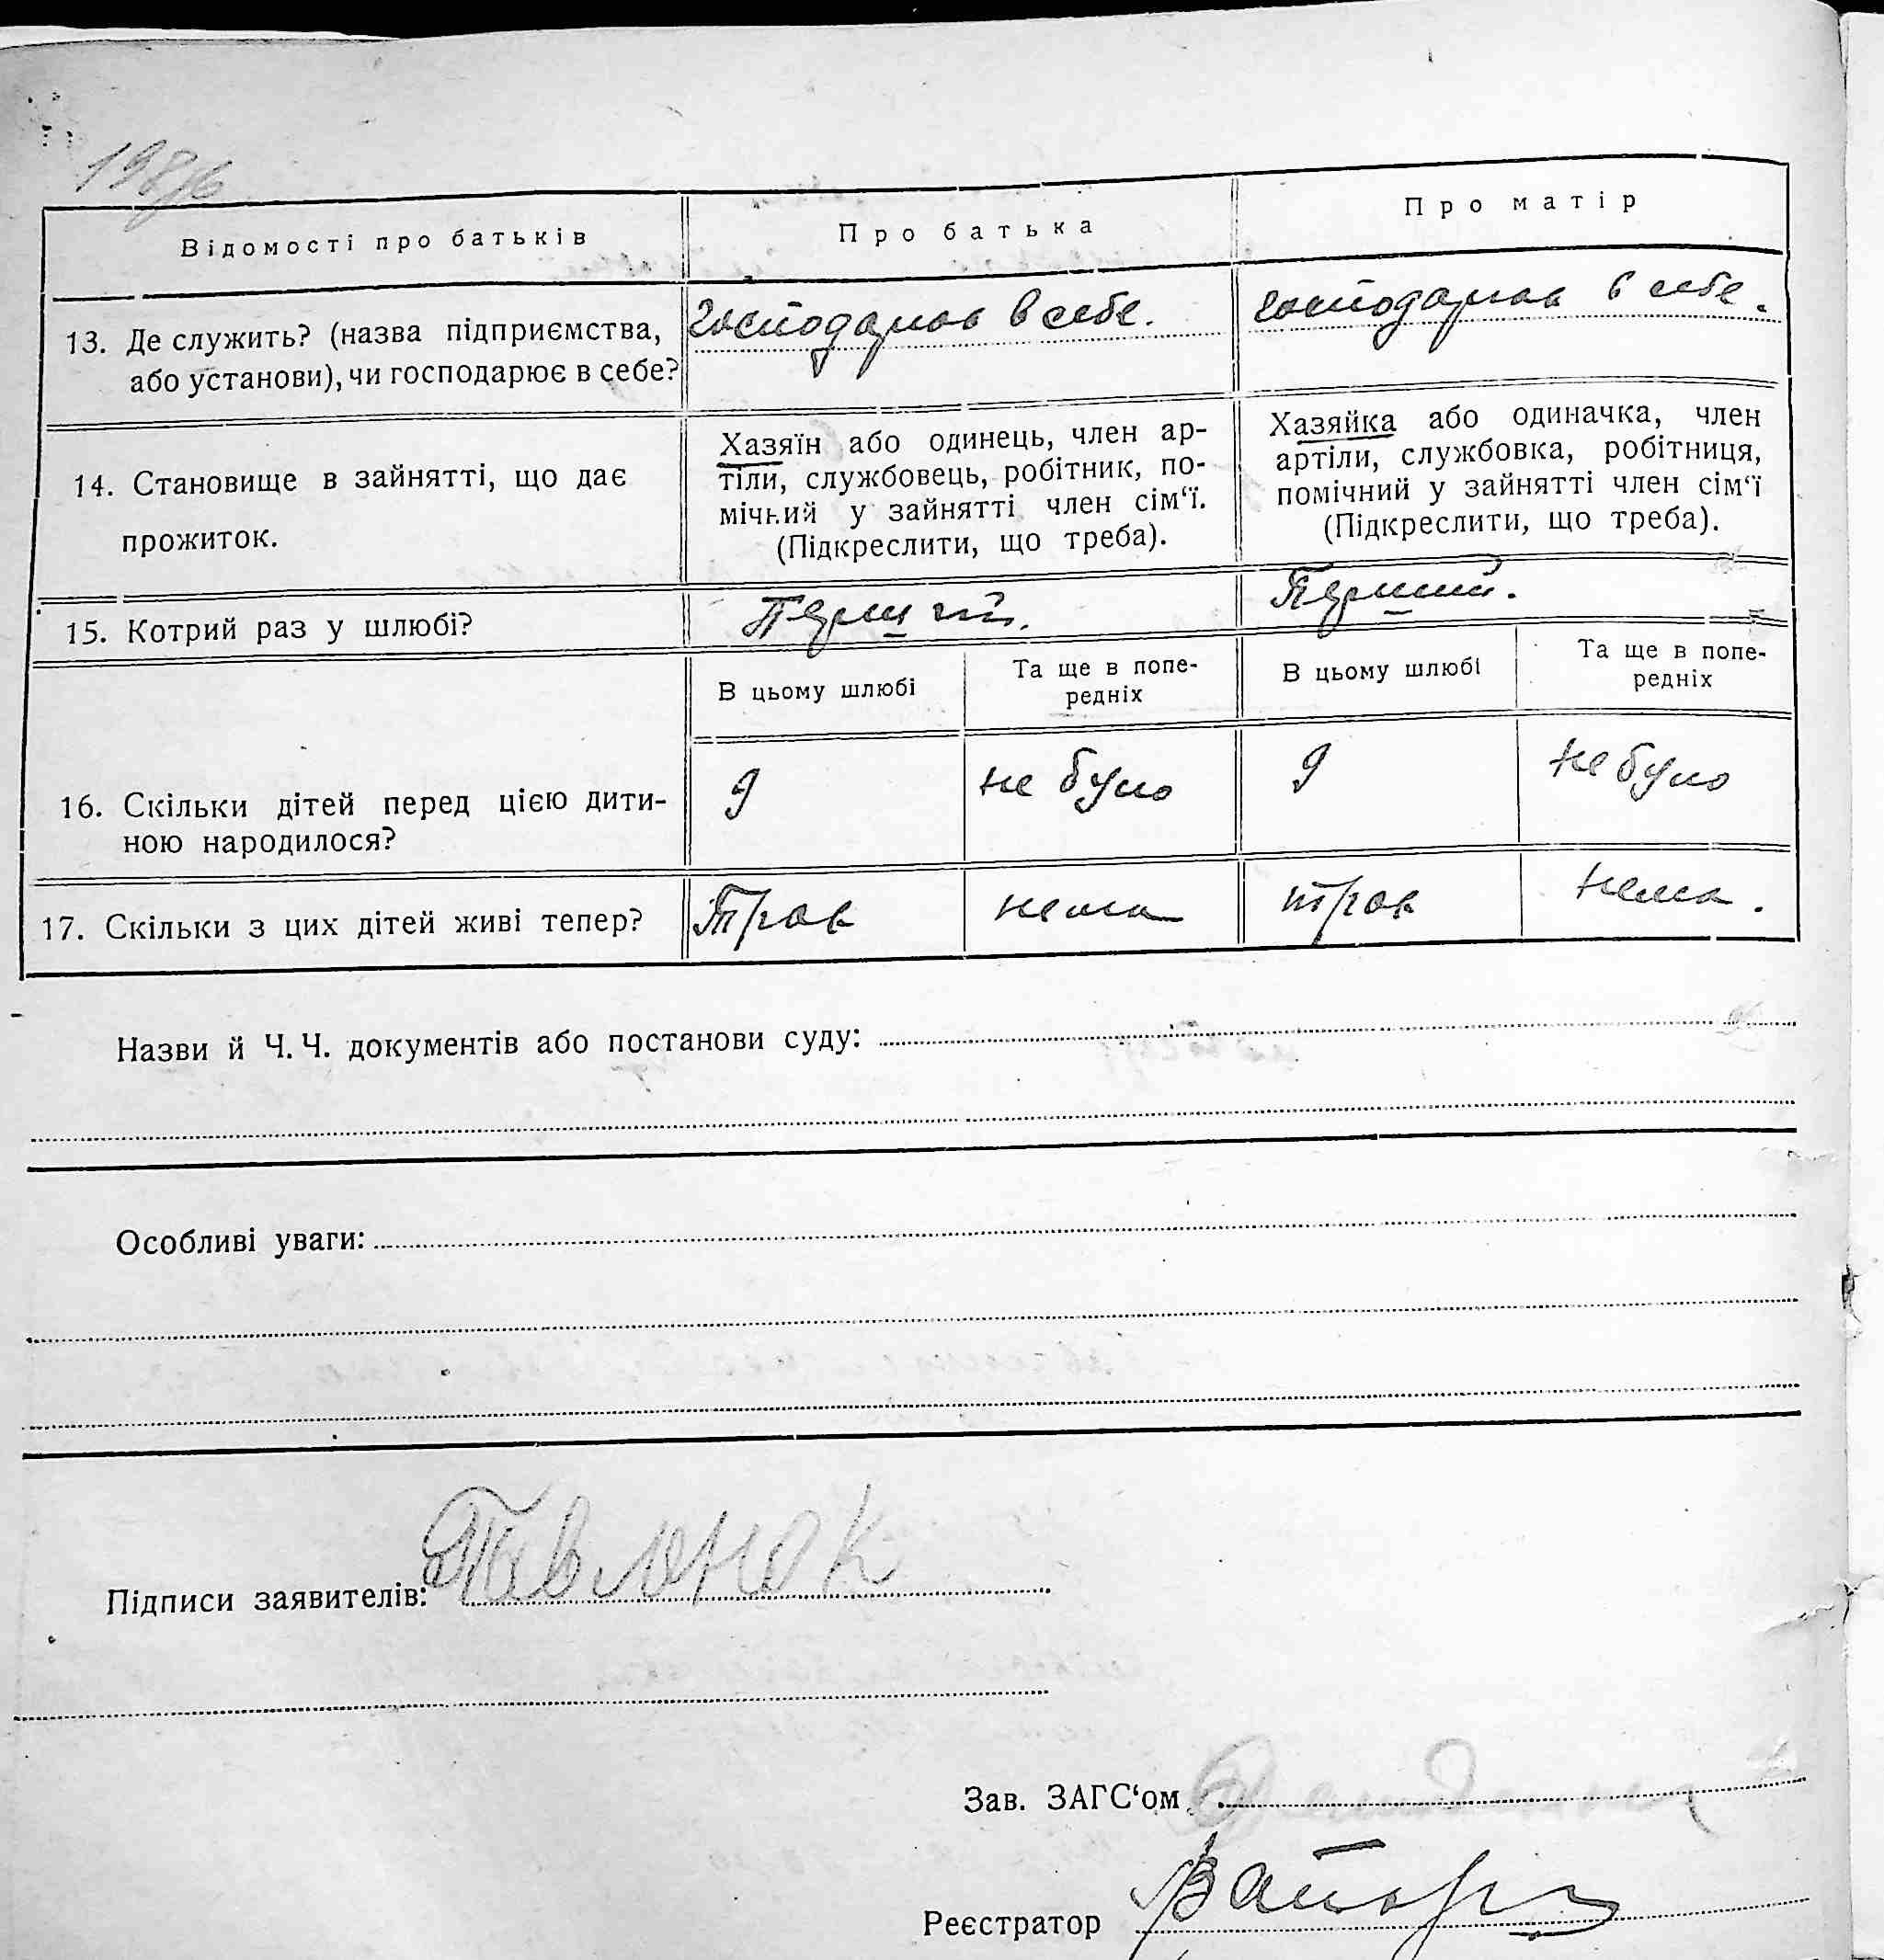 Відомості про батьків
Про батька
Про матір
13. Де служить? (назва підприємства,
або установи), чи господарює в себе?
господарює в себе.
господарює в себе.
14. Становище в зайнятті, що дає
прожиток.
Хазяїн або одинець, член ар-
тіли, службовець, робітник, по-
мічний у зайнятті член сім‘ї.
(Підкреслити, що треба).
Хазяйка або одиначка, член
артіли, службовка, робітниця,
помічний у зайнятті член сім‘ї
(Підкреслити, що треба).
15. Котрий раз у шлюбі?
Перший.
Перший.
В цьому шлюбі
Та ще в попе-
редніх
В цьому шлюбі
Та ще в попе-
редніх
16. Скільки дітей перед цією дити-
ною народилося?
9
не було
9
не було
17. Скільки з цих дітей живі тепер?
нема
нема.
Назви й Ч. Ч. документів або постанови суду:
Особливі уваги:
Підписи заявителів:
Зав. ЗАГС‘ом
Реєстратор